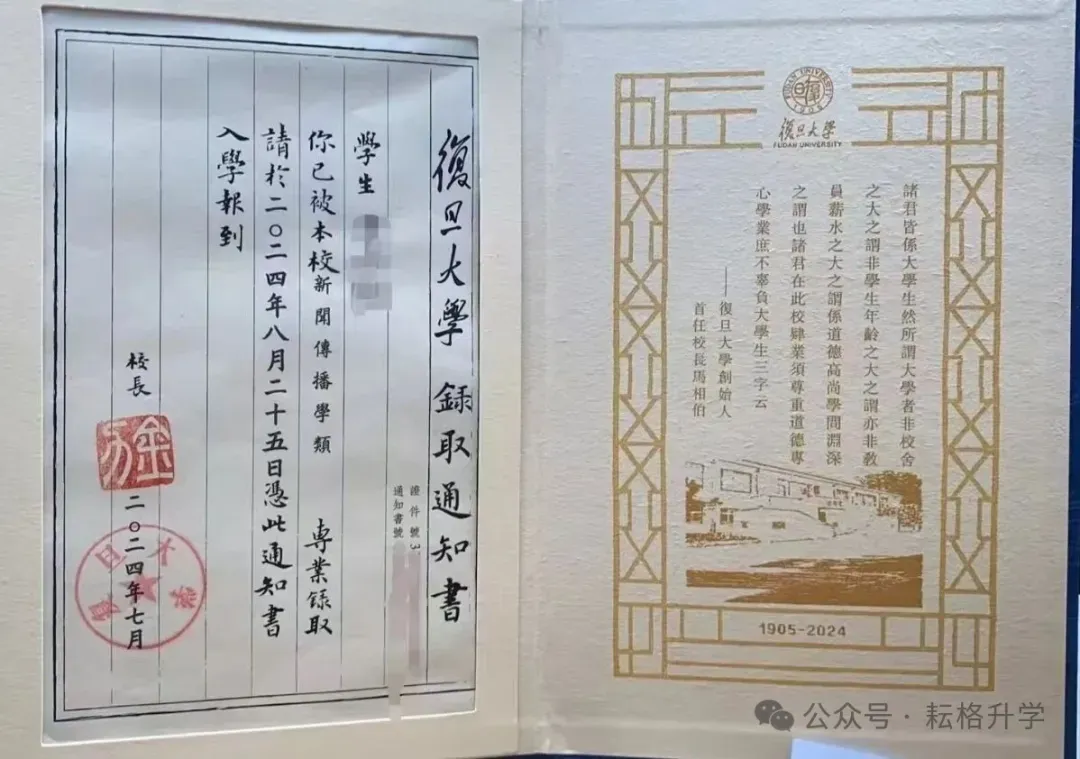 復旦大學錄取通知書
證件號3
通知書號
學生
你已被本校新聞傳播學類 專業錄取
請於二〇二四年八月二十五日憑此通知書
入學報到
校長
金力
二〇二四年七月
復旦大學
FUDAN UNIVERSITY
1905
復旦大學
FUDAN UNIVERSITY
諸君皆係大學生然所謂大學者非校舍
之大之謂非學生年齡之大之謂亦非教
員薪水之大之謂係道德高尚學問淵深
之謂也諸君在此校肄業須尊重道德專
心學業庶不辜負大學生三字云
——復旦大學創始人
首任校長馬相伯
1905-2024
公众号·耘格升学